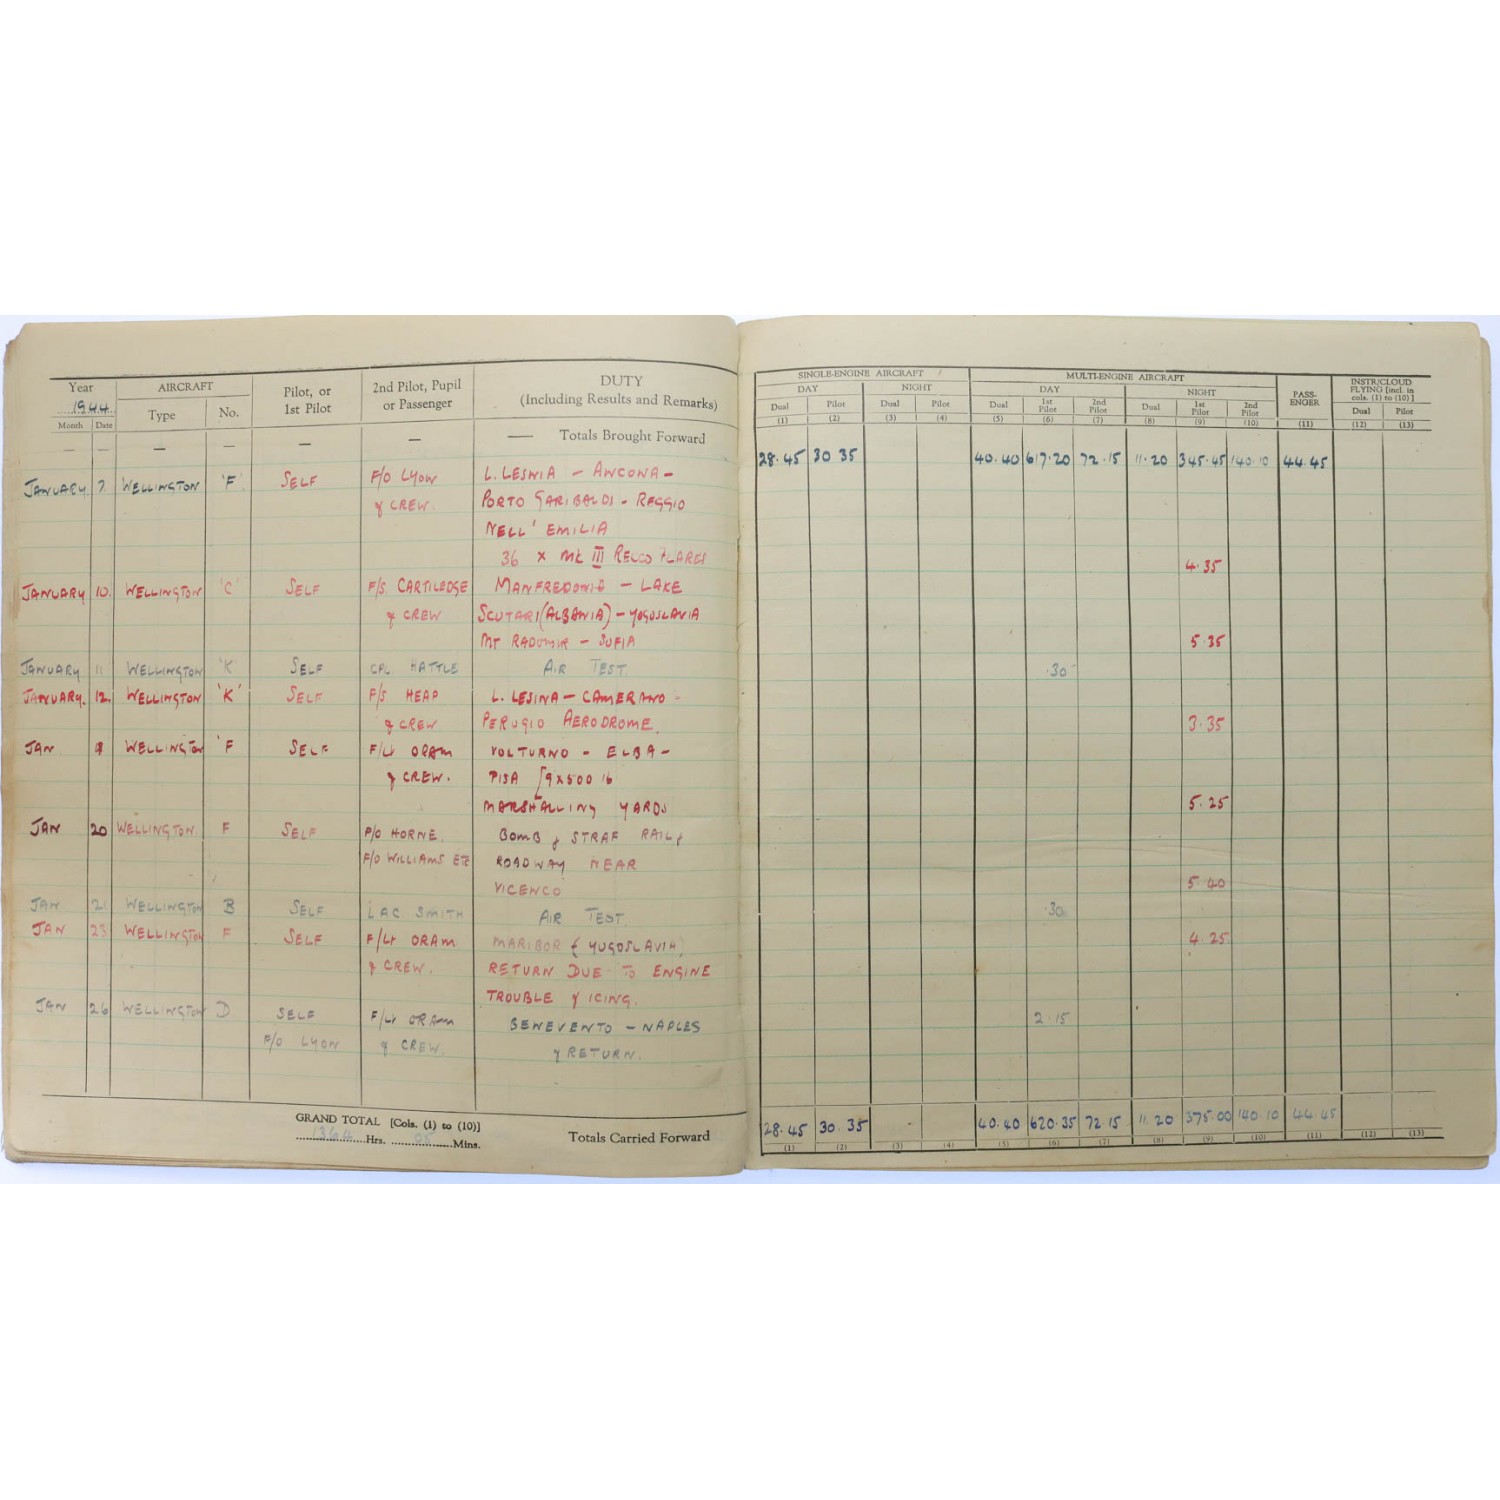 Year AIRCRAFT Pilot, or 1st Pilot 2nd Pilot, Pupil or Passenger DUTY (Including Results and Remarks)
1944 Type No.
Month Date
— — — — — — — Totals Brought Forward
JANUARY 7. WELLINGTON 'F' SELF F/O LYON L. LESNIA - ANCONA -
& CREW. PORTO GARIBALDI - REGGIO
NELL' EMILIA
36 x MK III RELCO FLARES
JANUARY 10. WELLINGTON 'C' SELF F/S. CARTILEDGE MANFREDONIA - LAKE
& CREW SCUTARI (ALBANIA) - YUGOSLAVIA
MT RADOMIR - SOFIA
JANUARY 11 WELLINGTON 'K' SELF CPL HATTLE AIR TEST
JANUARY. 12. WELLINGTON 'K' SELF F/S HEAP L. LESINA - CAMERANO -
& CREW PERUGIO AERODROME.
JAN WELLINGTON 'F SELF F/Lt ORAM VOLTURNO - ELBA -
& CREW. PISA [9x500 lb
MARSHALLING YARDS
JAN 20 WELLINGTON. F SELF P/O HORNE. BOMB & STRAF RAIL &
F/O WILLIAMS ETC ROADWAY NEAR
VICENCO
JAN 21 WELLINGTON B SELF LAC SMITH AIR TEST
JAN 23 WELLINGTON F SELF F/Lt ORAM MARIBOR (YUGOSLAVIA)
& CREW. RETURN DUE TO ENGINE
TROUBLE & ICING.
JAN 26 WELLINGTON D SELF F/Lt ORAM BENEVENTO - NAPLES
F/O LYON & CREW. & RETURN.
GRAND TOTAL [Cols. (1) to (10)]
1364 Hrs. 05 Mins. Totals Carried Forward
SINGLE-ENGINE AIRCRAFT MULTI-ENGINE AIRCRAFT PASS-ENGER INSTR/CLOUD FLYING [incl. in cols. (1) to (10)]
DAY NIGHT DAY NIGHT
Dual Pilot Dual Pilot Dual 1st Pilot 2nd Pilot Dual 1st Pilot 2nd Pilot Dual Pilot
(1) (2) (3) (4) (5) (6) (7) (8) (9) (10) (11) (12) (13)
28.45 30 35 40.40 617.20 72.15 11.20 345.45 140.10 44.45
4.35
5.35
.30
3.35
5.25
5.40
.30
4.25
2.15
28.45 30.35 - 40.40 620.35 72.15 11.20 375.00 140.10 44.45
(1) (2) (3) (4) (5) (6) (7) (8) (9) (10) (11) (12) (13)